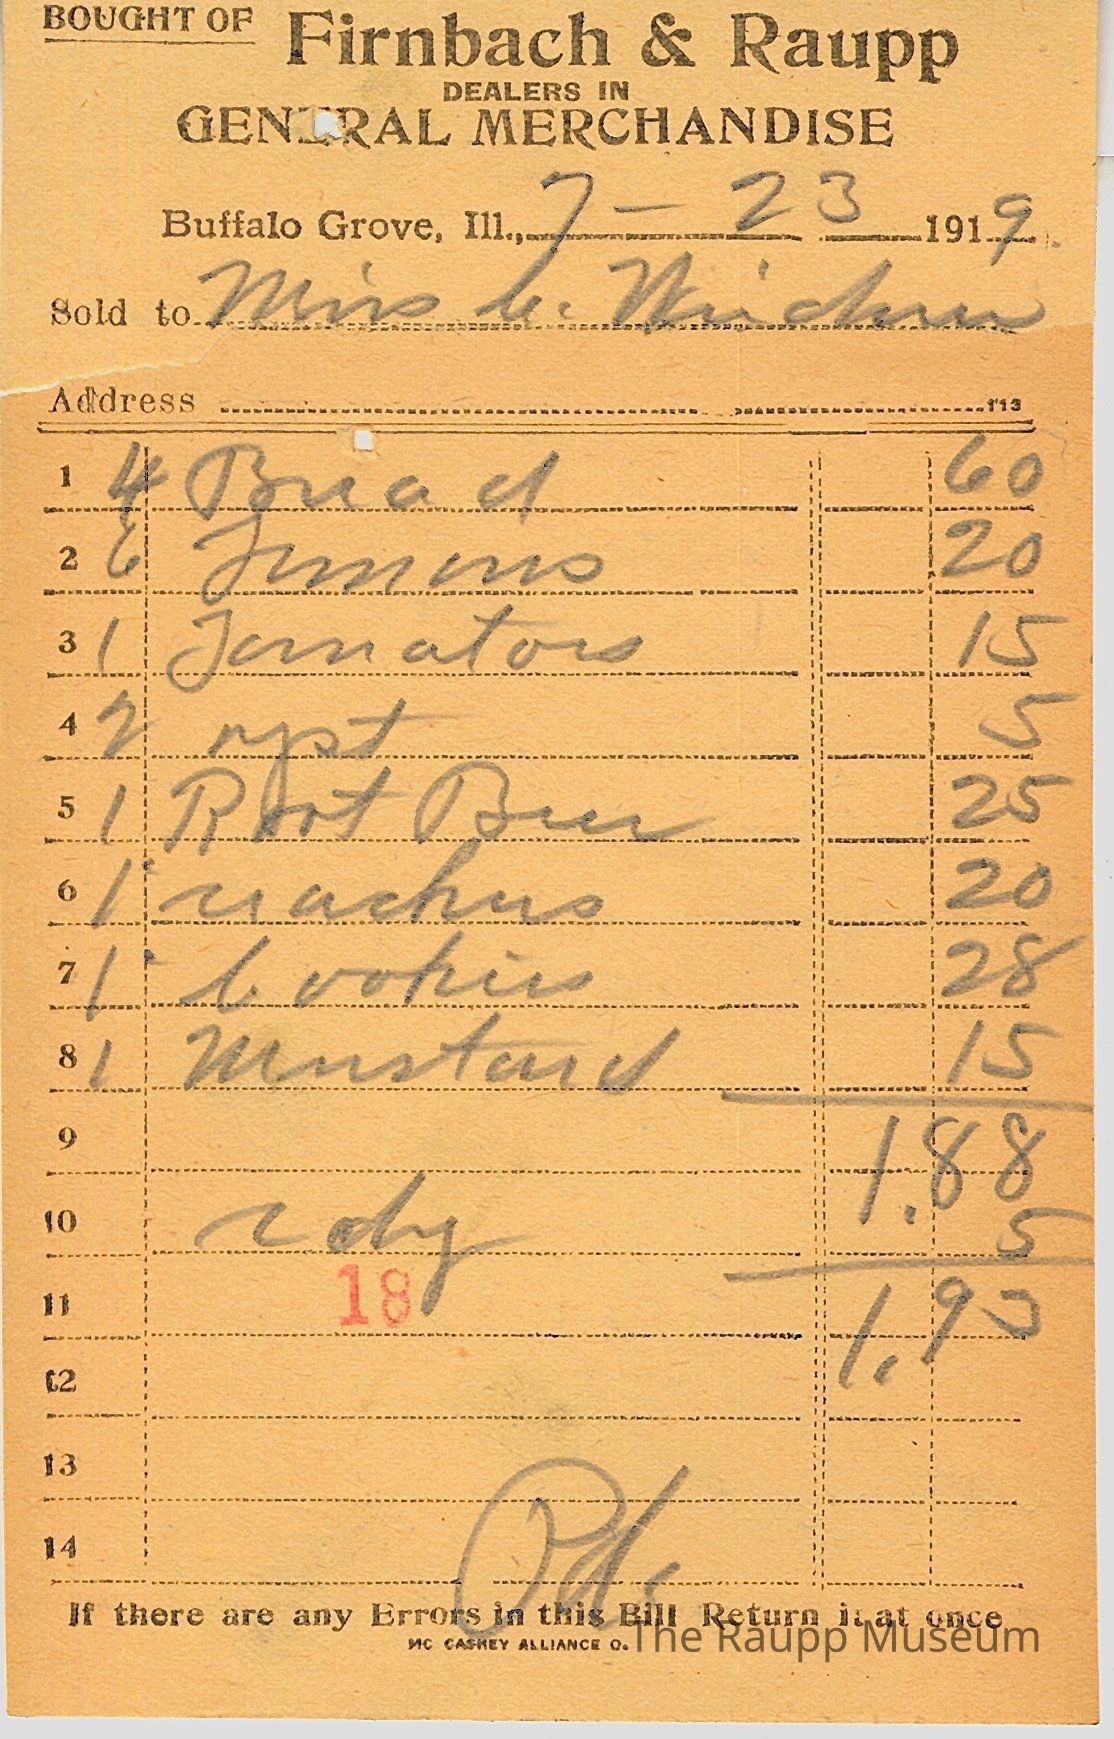 BOUGHT OF Firnbach & Raupp
DEALERS IN
GENERAL MERCHANDISE
Buffalo Grove, Ill., 7 - 23 1919
Sold to Miss C.
Address 113
1 4 Bread 60
2 6 Lemons 20
3 1 Tomatoes 15
4 2 yst 5
5 1 Root Beer 25
6 1 crackers 20
7 1 Cookies 28
8 1 Mustard 15
9 1.88
10 cdy 5
18
11 1.93
12
13
14 Pd
If there are any Errors in this Bill Return it at once
MC CASKEY ALLIANCE O.
The Raupp Museum